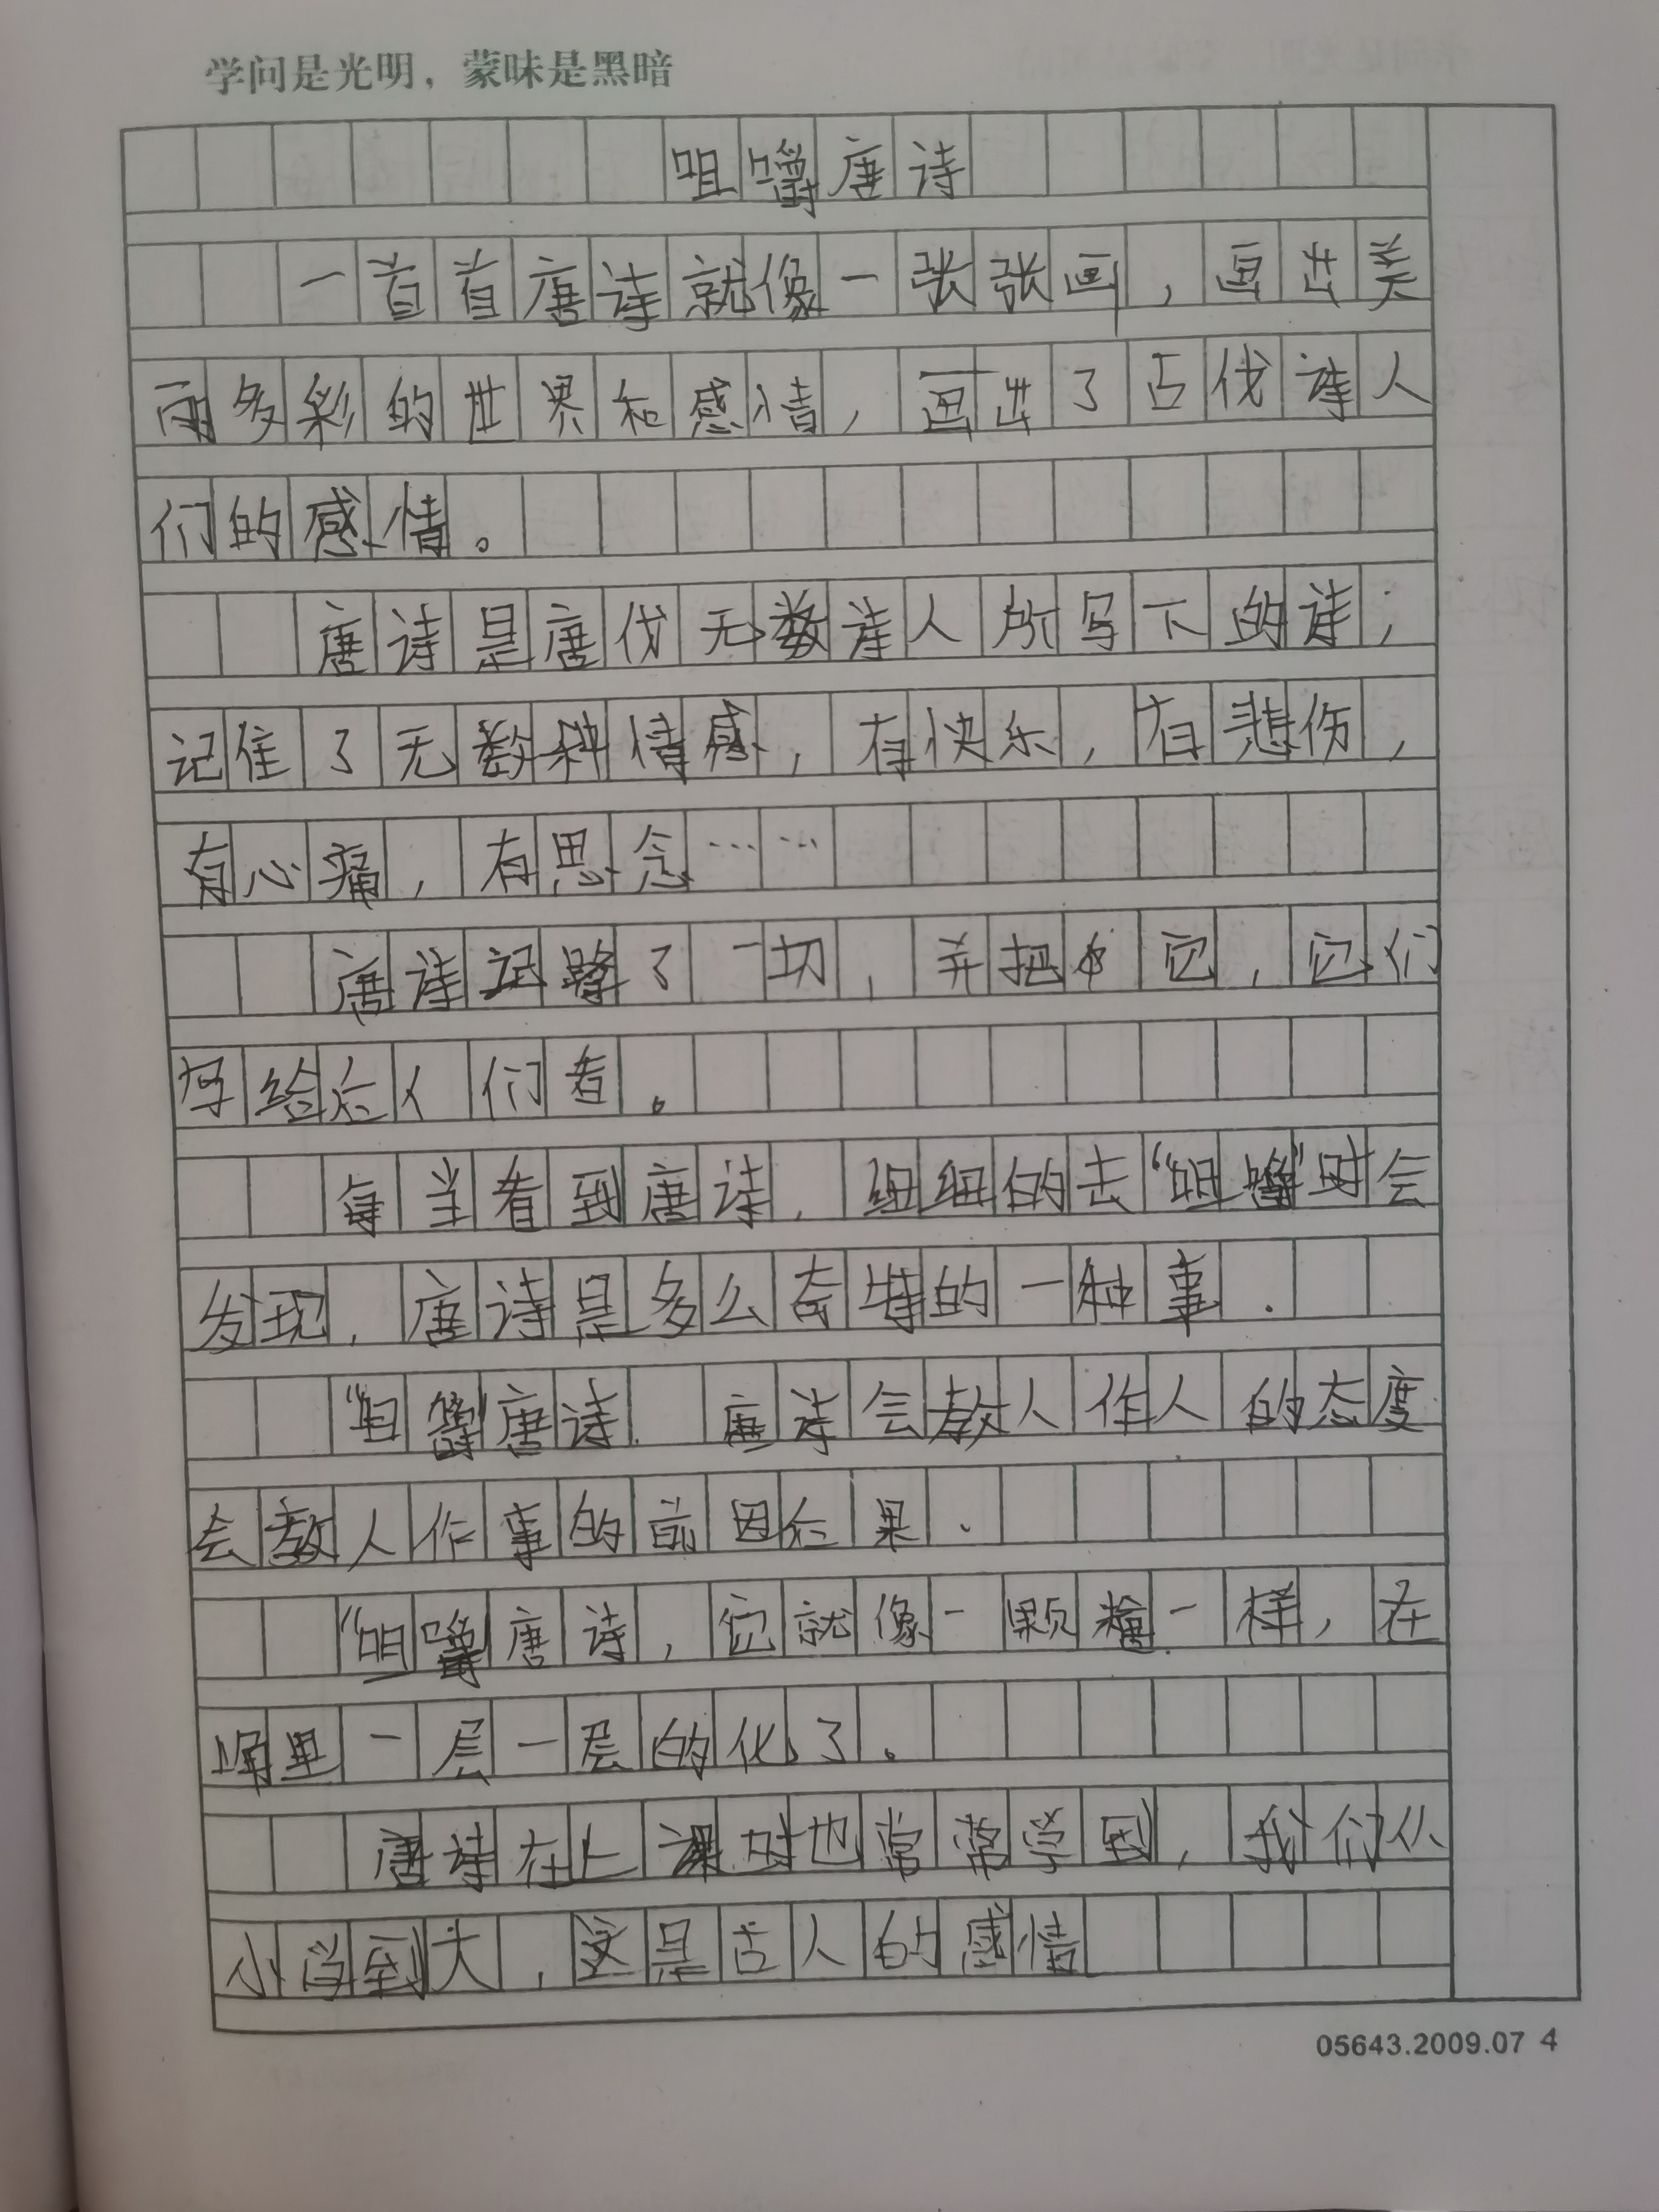 学问是光明，蒙昧是黑暗
咀嚼唐诗
一首首唐诗就像一张张画，画出美
丽多彩的世界和感情，画出了古代诗人
们的感情。
唐诗是唐代无数诗人所写下的诗；
记住了无数种情感，有快乐，有悲伤，
有心痛，有思念……
唐诗记录了一切，并把它，它们
写给后人们看。
每当看到唐诗，细细的去“咀嚼”时会
发现，唐诗是多么奇特的一种事.
“咀嚼”唐诗.唐诗会教人作人的态度
会教人作事的前因后果.
“咀嚼”唐诗，它就像一颗糖一样，在
嘴里一层一层的化了。
唐诗在上课时也常常学到，我们从
小学到大，这是古人的感情
05643.2009.07 4